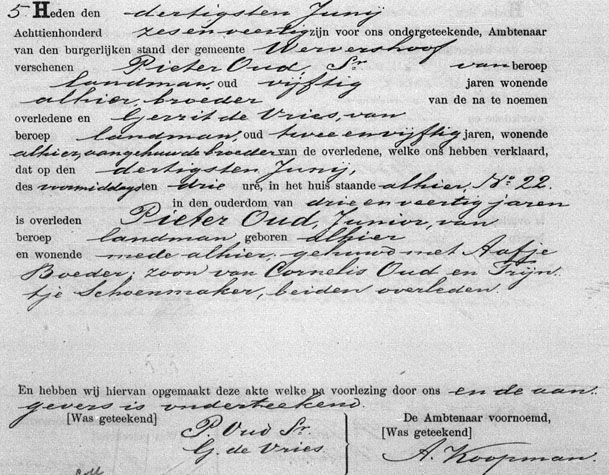 5 Heden den dertigsten Junij
Achttienhonderd zesenveertig zijn voor ons ondergeteekende, Ambtenaar
van den burgerlijken stand der gemeente Wervershoof
verschenen Pieter Oud, Sr. van beroep
landman, oud vijftig jaren wonende
alhier, broeder van de na te noemen
overledene en Gerrit de Vries, van
beroep landman, oud twee en vijftig jaren, wonende
alhier, aangehuwde broeder van de overledene, welke ons hebben verklaard,
dat op den dertigsten Junij,
des voormiddags ten drie ure, in het huis staande alhier, No. 22.
in den ouderdom van drie en veertig jaren
is overleden Pieter Oud, Junior, van
beroep landman, geboren alhier
en wonende mede alhier, gehuwd met Aafje
Boeder; zoon van Cornelis Oud en Trijn
tje Schoenmaker, beiden overleden.
En hebben wij hiervan opgemaakt deze akte welke na voorlezing door ons en de aan-
gevers is onderteekend.
[Was geteekend] De Ambtenaar voornoemd,
P. Oud Sr. [Was geteekend]
G. de Vries A. Koopman.